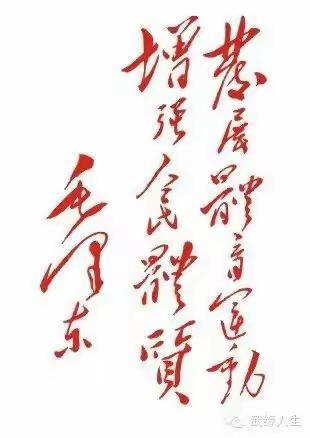 發展體育運動
增强人民體質
毛泽东
武缘人生